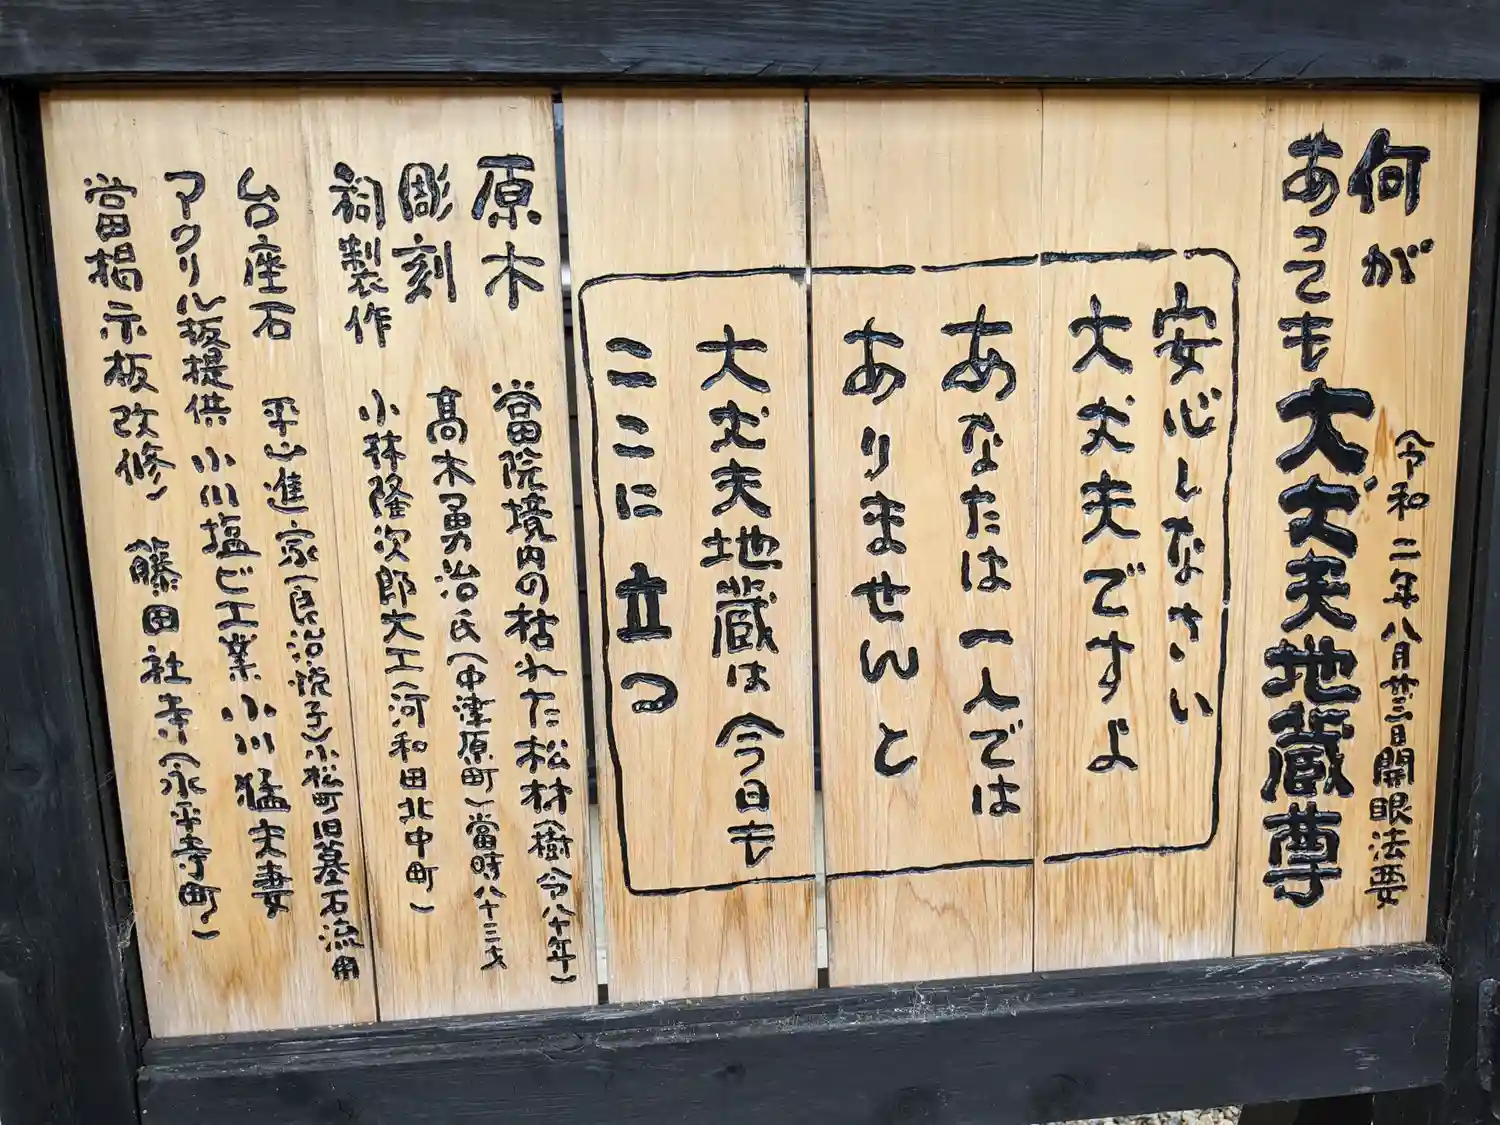 何が
あっても大丈夫地蔵尊
令和二年八月廿三日開眼法要
安心しなさい
大丈夫ですよ
あなたは一人では
ありませんと
大丈夫地蔵は今日も
ここに立つ
原木 當院境内の枯れた松材(樹令八十年)
彫刻 髙木勇治氏(中津原町)當時八十三才
祠製作 小林隆次郎大工(河和田北中町)
台座石 平山進家(良治悦子)小松町旧墓石流用
アクリル板提供 小川塩ビ工業 小川猛夫妻
當掲示板改修 藤田社寺(永平寺町)